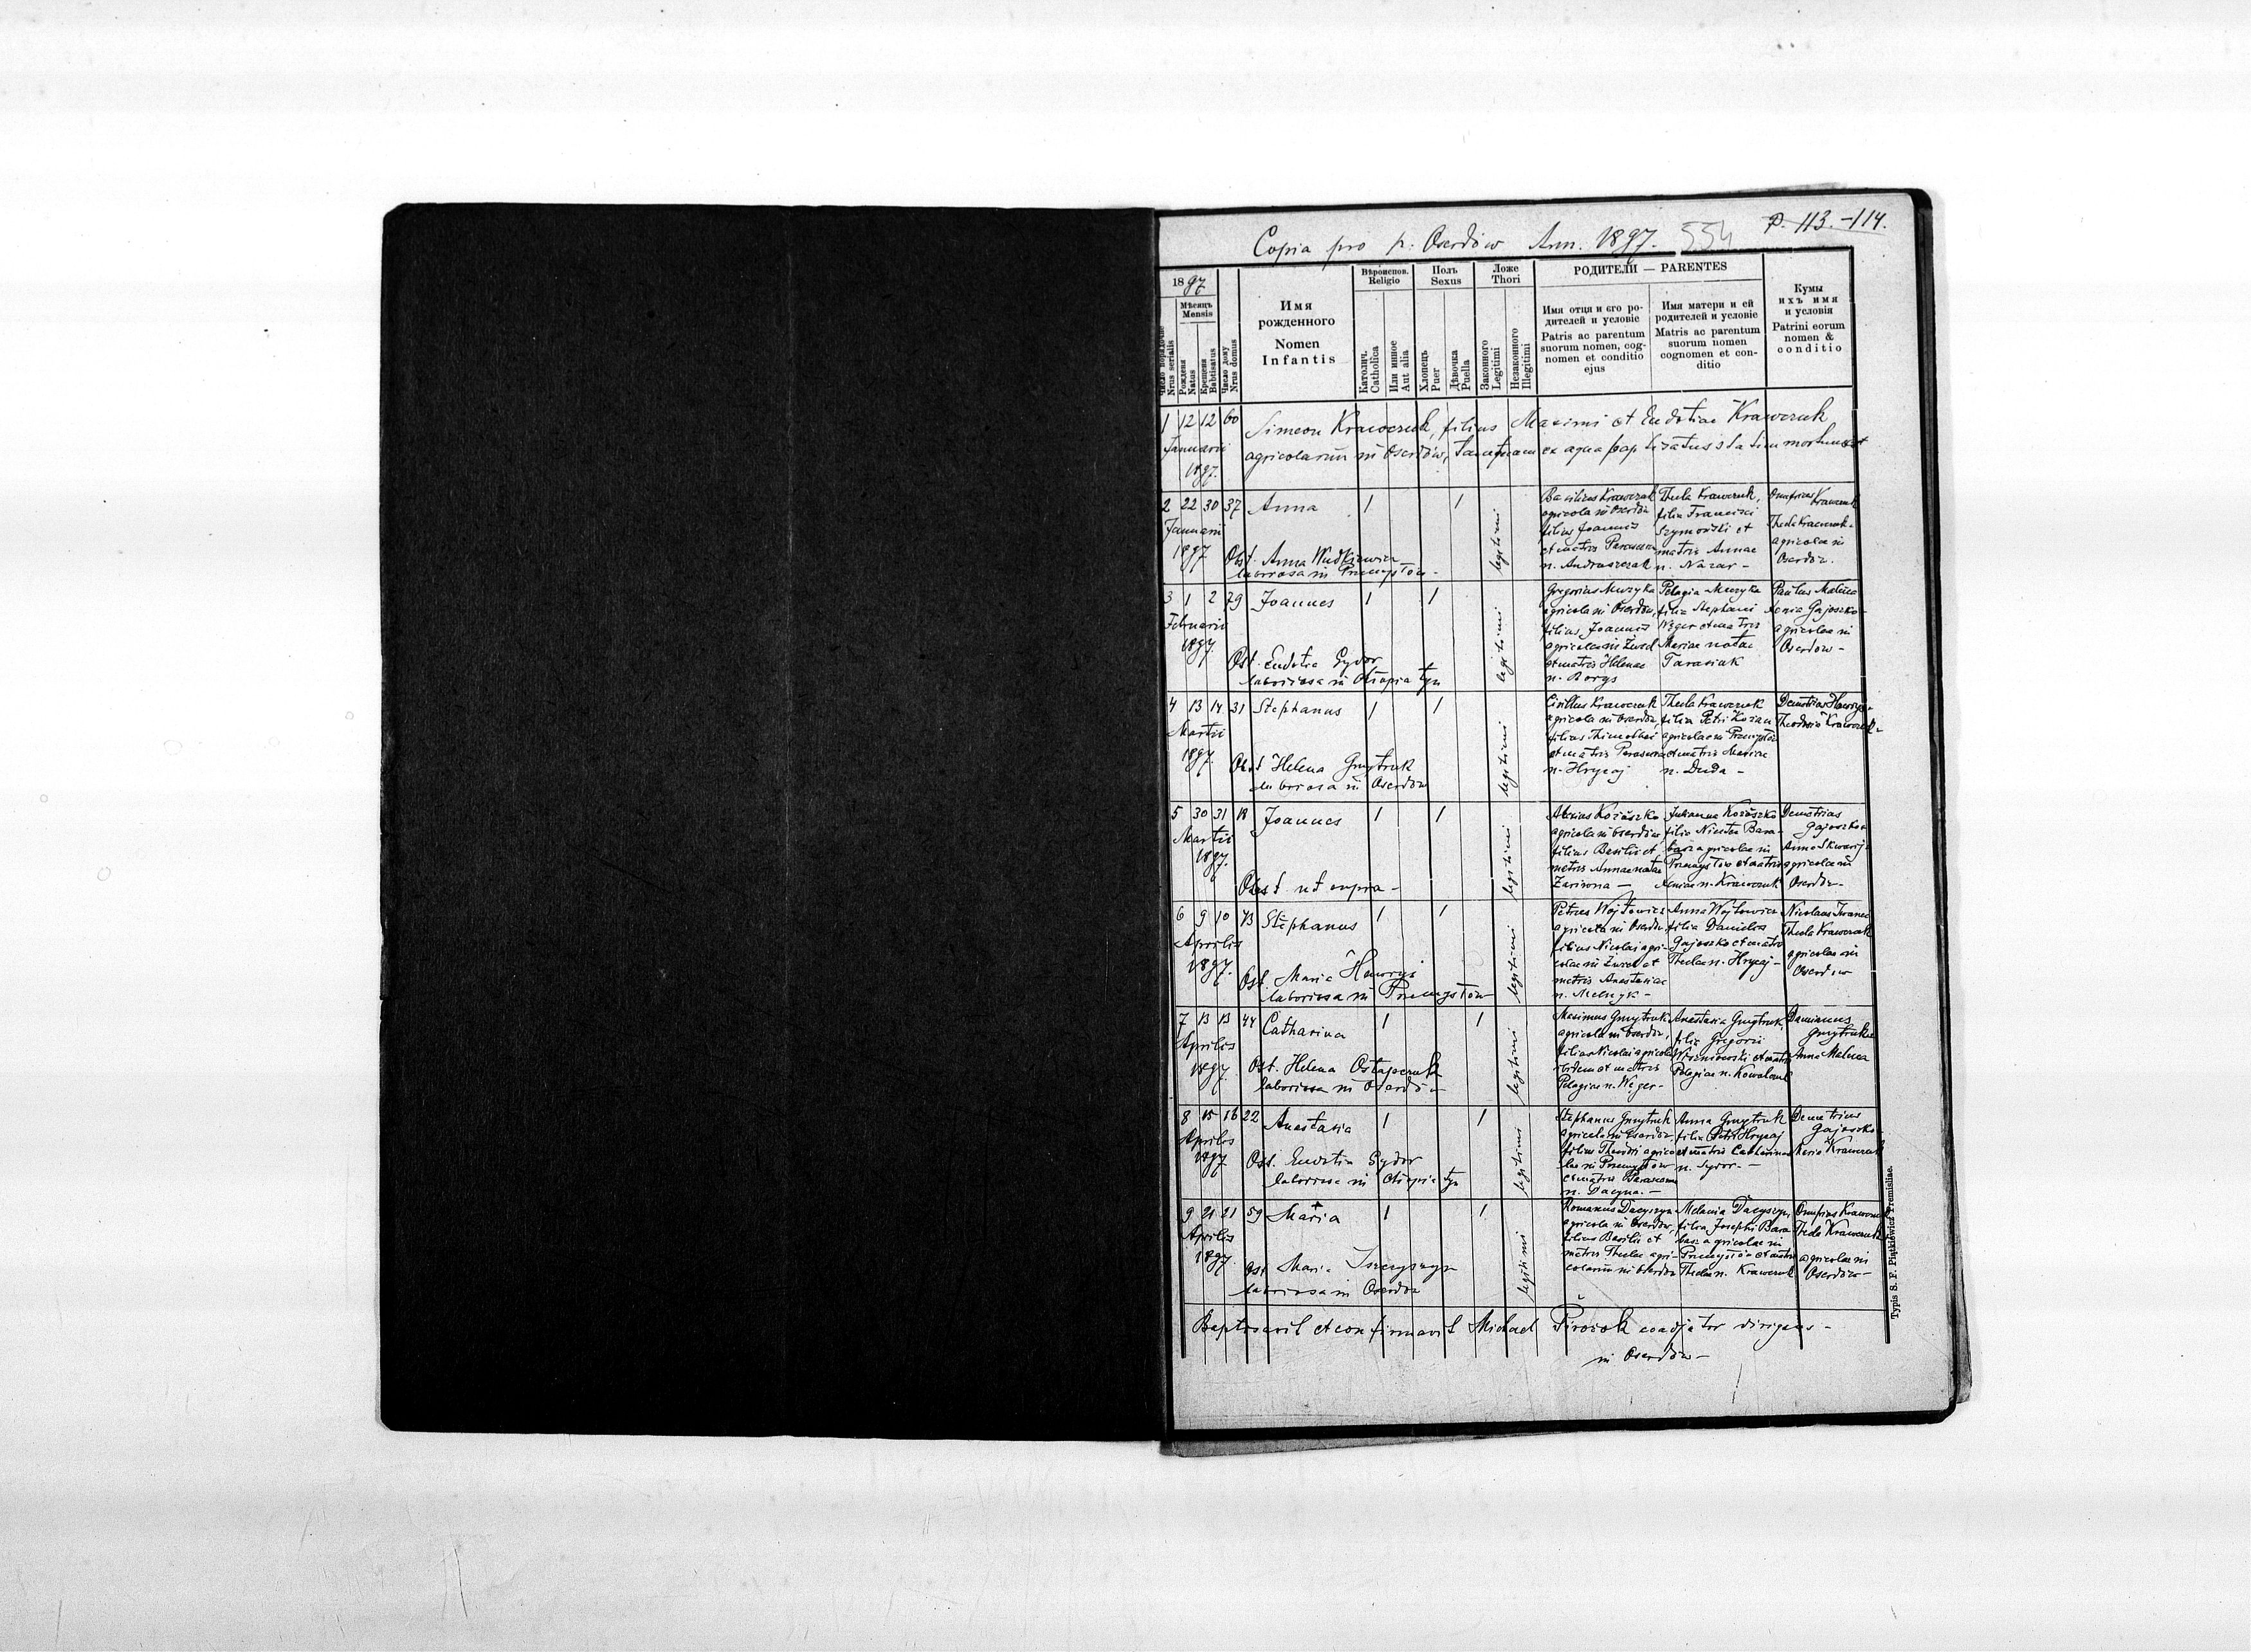 P. 113.-114.
Copia pro p: Oserdów Ann. 1897. 554
1897
Мѣсяць
Mensis
Число порядкове
Nrus serialis
Рождена
Natus
Крещена
Babtisatus
Число дому
Nrus domus
Имя
рожденного
Nomen
Infantis
Вѣроиспов.
Religio
Католич.
Catholica
Или инное
Aut alia
Полъ
Sexus
Хлопець
Puer
Дѣвочка
Puella
Ложе
Thori
Законного
Legitimi
Незаконного
Illegitimi
РОДИТЕЛИ — PARENTES
Имя отця и єго ро-
дителей и условіе
Patris ac parentum
suorum nomen, cog-
nomen et conditio
ejus
Имя матери и ей
родителей и условіе
Matris ac parentum
suorum nomen
cognomen et con-
ditio
Кумы
ихъ имя
и условія
Patrini eorum
nomen &
conditio
1 12 12 60
Januarii
1897.
Simeon Krawczuk, filius Maximi et Eudotiae Krawczuk
agricolarum in Oserdów, tamquam ex aqua baptizatus statim mortuus est
2 22 30 37 Anna 1 1
Januarii
1897
Obst. Anna Wudkiewicz
laboriosa in Przemysłów -
legitimi
Basilius Krawczuk
agricola in Oserdów
filius Joannis
et matris
n. Andruszczak
Thecla Krawczuk,
filia Francisci
Szymoński et
matris Annae
n. Nazar -
Onufrius Krawczuk
Thecla Krawczuk -
agricolae in
Oserdów.
3 1 2 79 Joannes 1 1
Februarii
1897
Obst. Eudotia Sydor
laboriosa in
legitimi
Gregorius Muzyka
agricola in Oserdów,
filius Joannis
agricolae in Żurel
et matris Helenae
n. Borys
Pelagia Muzyka
filia Stephani
Węger et matris
Mariae natae
Tarasiuk
Paulus Malica
Xenia Gajoszko -
agricolae in
Oserdów -
4 13 14 31 Stephanus 1 1
Martii
1897.
Obst Helena Gmytruk
laboriosa in Oserdów
legitimi
Cirillus Krawczuk
agricola in Oserdów,
filius Thimothei
et matris
n. Hrycaj
Thecla Krawczuk
filia Petri Kozan
agricolae in Przemysłów
et matris Mariae
n. Duda -
Demetrius
Theodosia Krawczuk -
5 30 31 18 Joannes 1 1
Martii
1897.
Obst. ut supra -
legitimi
Alexius Kozaszko
agricola in Oserdów
filius Basilii et
matris Annae natae
Zarisna -
Julianna Kozaszko
filia Bara-
basz agricolae in
Przemysłów et matris
Xeniae n. Krawczuk
Demetrius
Gajoszko
Anna
agricolae in
Oserdów -
6 9 10 73 Stephanus 1 1
Aprilis
1897.
Ost. Maria Hawryś
laboriosa in Przemysłów
legitimi
Petrus Wojtowicz
agricola in Oserdów
filius Nicolai agri-
colae in Żurel et
matris Anastasiae
n. Melnyk -
Anna Wojtowicz
filia Danielis
Gajoszko et matris
Theclae n. Hrycaj -
Nicolaus Iwanec
Thecla Krawczuk
agricolae in
Oserdów
7 13 13 44 Catharina 1 1
Aprilis
1897
Ost. Helena Ostapczuk
laboriosa in Oserdów -
legitimi
Maximus Gmytruk
agricola in Oserdów,
filius Nicolai agricolae
ibidem et matris
Pelagiae n. Węger -
Anastasia Gmytruk
filia Gregorii
Wiszniowski et matris
Pelagiae n. Kowaluk
Damianus
Gmytruk
Anna Malica
8 15 16 22 Anastasia 1 1
Aprilis
1897
Ost. Eudotia Sydor
laboriosa in
legitimi
Stephanus Gmytruk
agricola in Oserdów
filius Theodori agrico-
lae in Przemysłów
et matris
n. Dacyna. -
Anna Gmytruk
filia Petri Hrycaj
et matris Catharinae
n. Sydor. -
Demetrius
Gajoszko -
Maria Krawczuk
9 21 21 59 Maria 1 1
Aprilis
1897.
Ost Maria
laboriosa in Oserdów
legitimi
Romanus Dacyszyn
agricola in Oserdów,
filius Basilii et
matris Theclae agri-
colarum in Oserdów
Melania Dacyszyn,
filia Josephi Bara
basz agricolae in
Przemysłów et matris
Theclae n. Krawczuk
Onufrius Krawczuk
Thecla Krawczuk
agricolae in
Oserdów -
Baptisavit et confirmavit Michael Pirożok coadjutor dirigens -
in Oserdów -
Typis S. F. Piątkiewicz Premisliae.